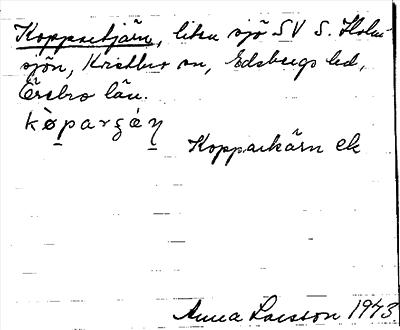 Kopparkjärn, liten sjö SV S. Holm-
sjön, Kvistbro sn, Edsbergs hd,
Örebro län.
Kopparkärn ek
Anna Larsson 1943